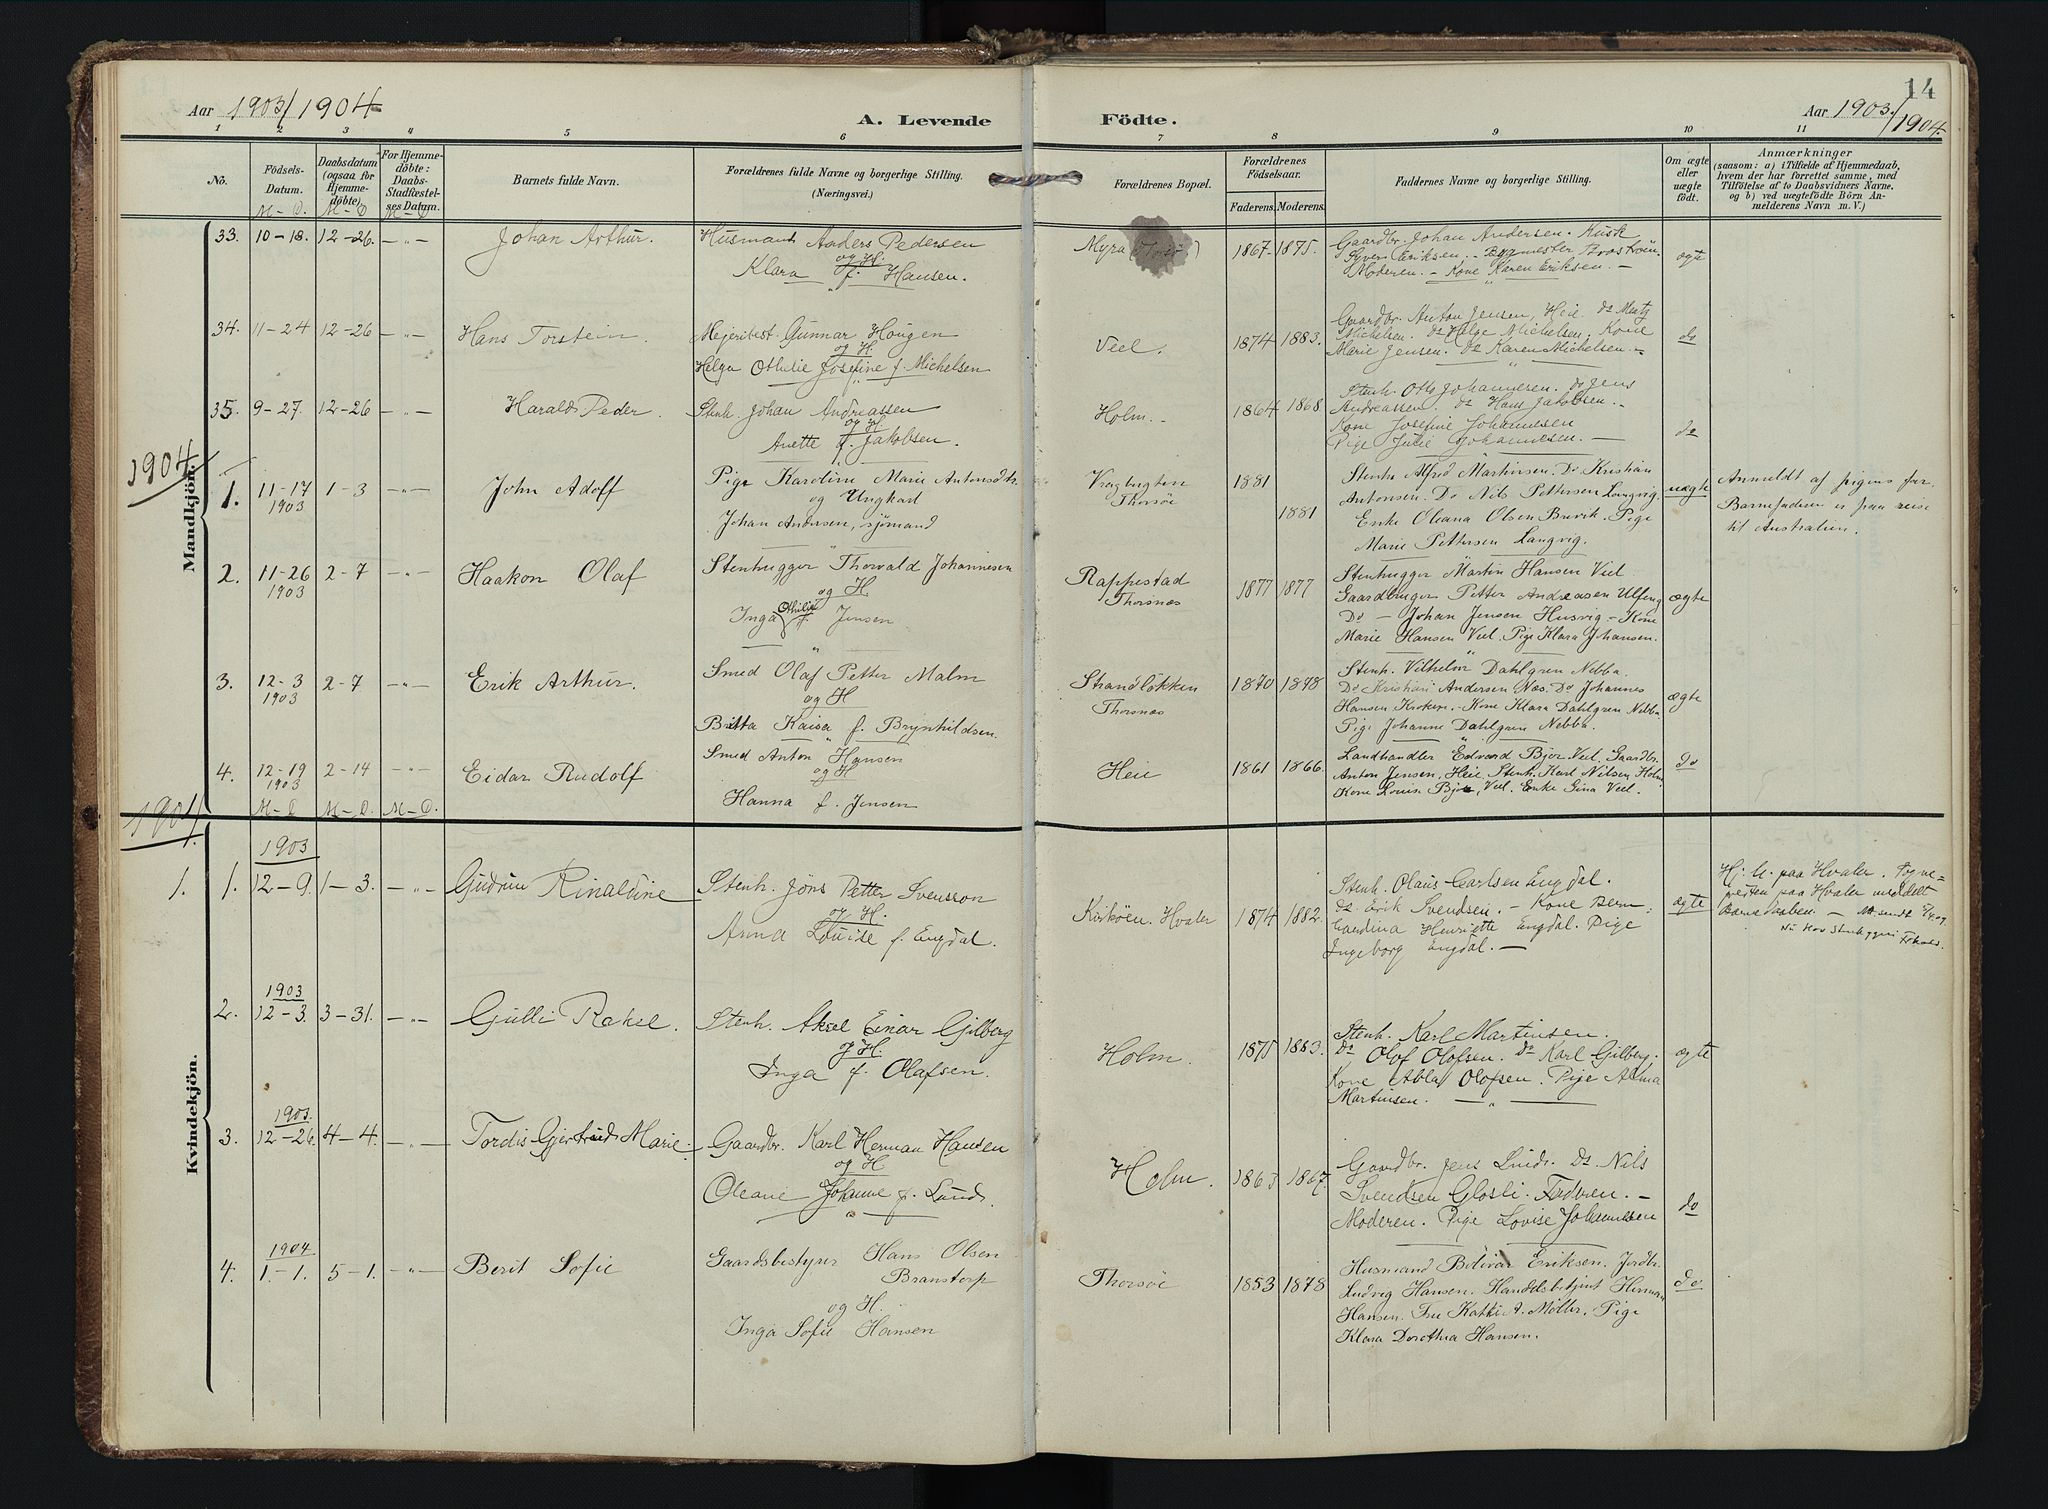 14
Aar 1903/1904
A. Levende Födte.
Aar 1903/1904
1 2 3 4 5 6 7 8 9 10 11
No.
Födsels-Datum.
M – D.
Daabsdatum (ogsaa for Hjemmedöbte)
M – D
For Hjemmedöbte: Daabs-Stadfæstelses Datum.
M – D.
Barnets fulde Navn.
Forældrenes fulde Navne og borgerlige Stilling.
(Næringsvei.)
Forældrenes Bopæl.
Forældrenes Födselsaar.
Faderens. Moderens.
Faddernes Navne og borgerlige Stilling.
Om ægte eller uægte födt.
Anmærkninger
(saasom: a) i Tilfælde af Hjemmedaab,
hvem der har forrettet samme, med
Tilföielse af to Daabsvidners Navne.
og b) ved uægtefödte Börn An-
melderens Navn m. V.)
Mandkjön.
33. 10–18. 12–26. –„– Johan Arthur.
Husmand Anders Pedersen
og H.
Klara f. Hansen.
Myra
1867– 1875.
Gaardbr. Johan Andersen. Kusk
Syver Eriksen. –
Moderen. – Kone Karen Eriksen. –
ægte
34. 11–24 12–26 –„– Hans Torstein.
Mejeribest. Gunnar Hougen
og H.
Helga Othilie Josefine f. Michelsen
Veel.
1874 1883.
Gaardbr. Anton Jensen, Heie. Do Matz
Michelsen. Do Helge Michelsen. Kone
Marie Jensen. Do Karen Michelsen. –
do
35. 9–27. 12–26 –„– Harald Peder.
Stenh. Johan Andreassen
og H.
Anette f. Jakobsen.
Holm. –
1864 1868.
Stenh. Otto Johannesen. Do Jens
Andreassen. Do Hans Jakobsen. –
Kone Josefine Johannesen
Pige Julie Johannesen. –
do
1904
1. 11–17 1903 1–3 –„– John Adolf
Pige Karoline Marie Antonsdtr.
og Ungkarl
Johan Andersen, sjømand
Thorsöe
1881
1881
Stenh. Alfred Martinsen. Do Kristian
Antonsen. Do Nils Pettersen Langvig.
Enke Oleana Olsen Buvik. Pige
Marie Pettersen Langvig.
uægte
Anmeldt af pigens far.
Barnefaderen er paa reise
til Australien.
2. 11–26 1903 2–7 –„– Haakon Olaf
Stenhugger Thorvald Johannesen
og H.
Inga Othilie f. Jensen
Rappestad
Thorsnæs
1877 1877
Stenhugger Martin Hansen Veel
Gaardbruger Petter Andreasen Ulfeng
Do – Johan Jensen Husvig – Kone
Marie Hansen Veel. Pige Klara Johansen.
ægte
3. 12–3 1903 2–7 –„– Erik Arthur.
Smed Olaf Petter Malm
og H
Britta Kaisa f. Brynhildsen.
Strandløkken
Thorsnæs
1870 1878
Stenh. Vilhelm Dahlgren Nebba.
Do Kristian Andersen Næs. Do Johannes
Hansen Kroken. – Kone Klara Dahlgren Nebba.
Pige Johanne Dahlgren Nebba.
ægte
4. 12–19 1903 2–14 –„– Eidar Rudolf
Smed Anton Hansen
og H
Hanna f. Jensen
Heie
1861 1866.
Landhandler Edvard Bjør Veel. Gaardbr.
Anton Jensen, Heie. Stenh. Karl Nilsen Holm
Kone Lovise Bjør, Veel. Enke Gina Veel.
do
M – D M – D. M – D.
1904.
Kvindekjön.
1. 1. 1903 12–9. 1–3. –„– Gudrun Rinaldine
Stenh. Jöns Petter Svensson
og H.
Anna Louise f. Engdal.
Kirköen. Hvaler
1874 1882.
Stenh. Olaus Carlsen Engdal.
Do Erik Svendsen. – Kone Bern-
hardina Henriette Engdal. Pige
Ingeborg Engdal. –
ægte
Hj. h. paa Hvaler. Sogne-
presten paa Hvaler meddelt
Barnedaaben. –
2. 1903 12–3. 3–31. –„– Gulli Raksel.
Stenh. Aksel Einar Gilberg
og H.
Inga f. Olafsen.
Holm.
1875 1883.
Stenh. Karl Martinsen.
Do Olof Olofsen. Do Karl Gilberg.
Kone Abla Olofsen. Pige Alma
Martinsen. –„–
ægte
3. 1903. 12–26. 4–4. –„– Tordis Gjertrud Marie.
Gaardbr. Karl Herman Hansen
og H
Oleane Johanne f. Lund.
Holm.
1863 1867.
Gaardbr. Jens Lund. Do Nils
Svendsen Glosli. Faderen. –
Moderen. Pige Lovise Johannesen
do
4. 1904 1.–1. 5–1. –„– Berit Sofie
Gaardsbestyrer Hans Olsen
Branstorp
og H.
Inga Sofie Hansen
Thorsöe
1853 1878
Husmand Bolivar Eriksen. Jordbr.
Ludvig Hansen. Handelsbetjent Herman
Hansen. Fru Kathi A. Møller. Pige
Klara Dorothea Hansen.
do